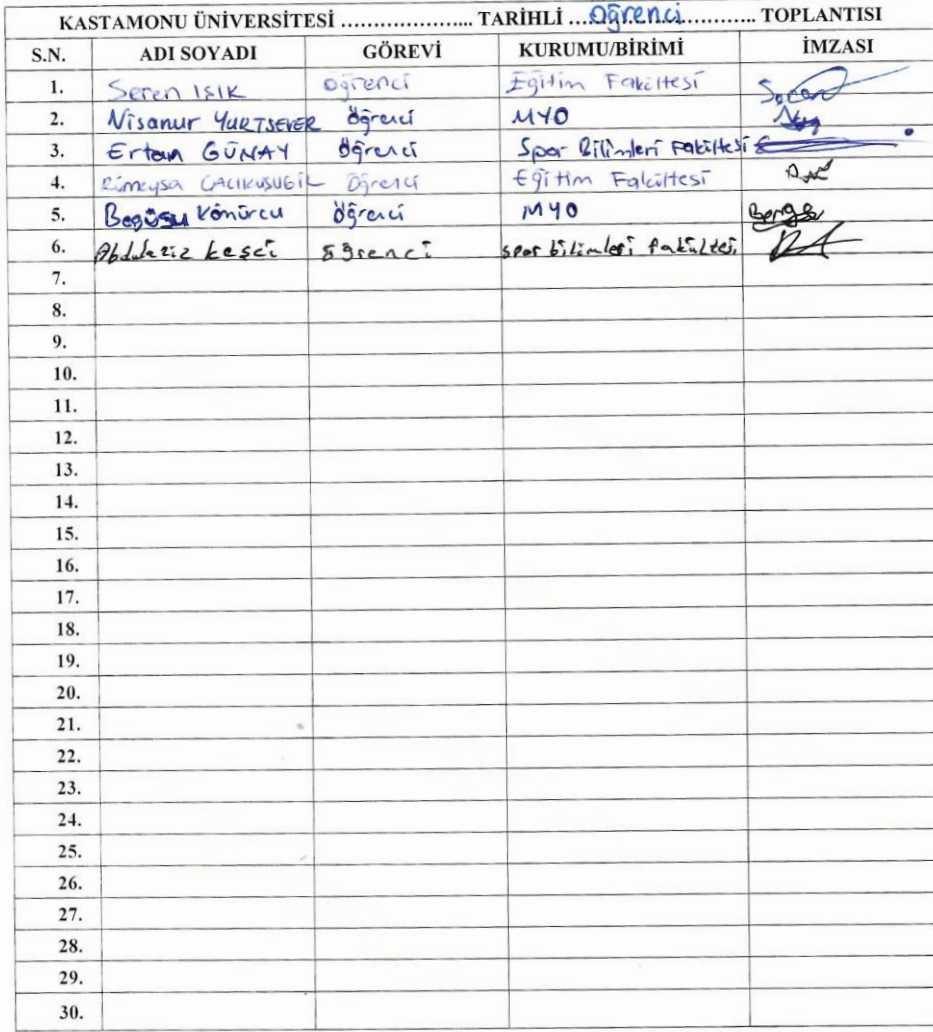 KASTAMONU ÜNİVERSİTESİ ....................... TARİHLİ ....Öğrenci............. TOPLANTISI
S.N. ADI SOYADI GÖREVİ KURUMU/BİRİMİ İMZASI
1. Seren IŞIK Öğrenci Eğitim Fakültesi
2. Nisanur YURTSEVER Öğrenci MYO
3. Ertan GÜNAY Öğrenci Spor Bilimleri Fakültesi
4. Rümeysa Öğrenci Eğitim Fakültesi
5. Könürcu Öğrenci MYO
6. Abdulaziz keşci öğrenci spor bilimleri fakültesi
7.
8.
9.
10.
11.
12.
13.
14.
15.
16.
17.
18.
19.
20.
21.
22.
23.
24.
25.
26.
27.
28.
29.
30.